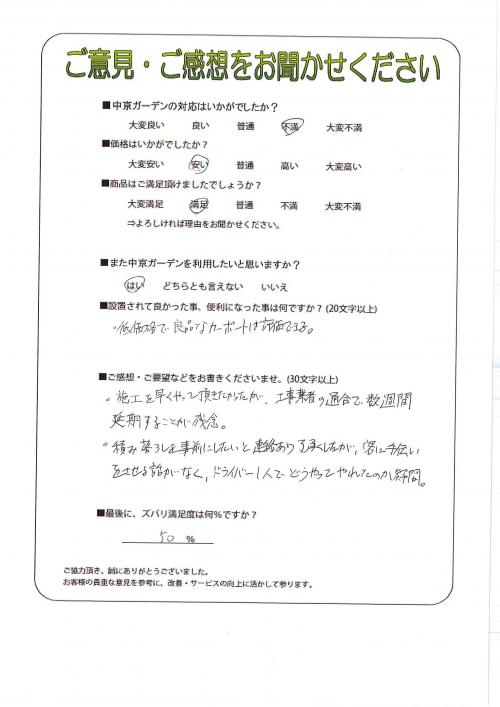 ご意見・ご感想をお聞かせください
■中京ガーデンの対応はいかがでしたか？
大変良い 良い 普通 不満 大変不満
■価格はいかがでしたか？
大変安い 安い 普通 高い 大変高い
■商品はご満足頂けましたでしょうか？
大変満足 満足 普通 不満 大変不満
⇒よろしければ理由をお聞かせください。
■また中京ガーデンを利用したいと思いますか？
はい どちらとも言えない いいえ
■設置されて良かった事、便利になった事は何ですか？(20文字以上)
。低価格で良品なカーポートは評価できる。
■ご感想・ご要望などをお書きくださいませ。(30文字以上)
。施工を早くやって頂きたかったが、工事業者の都合で数週間
延期することが残念。
。積み落しを事前にしたいと連絡あり了承したが、客に手伝い
をさせる話がなく，ドライバー1人でどうやってやれたのか疑問。
■最後に、ズバリ満足度は何%ですか？
50 %
ご協力頂き、誠にありがとうございました。
お客様の貴重な意見を参考に、改善・サービスの向上に活かして参ります。